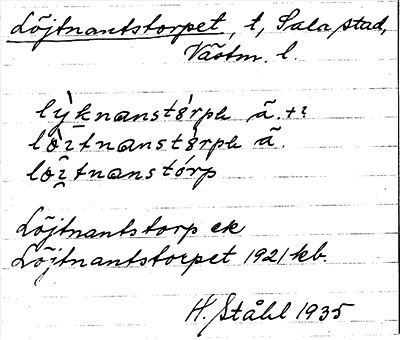 Löjtnantstorpet, t, Sala stad,
Västm. l.
lỳknanstórph ä. +?
lòitnanstórph ä.
lòitnanstórp
Löjtnantstorp ek
Löjtnantstorpet 1921 kb.
H. Ståhl 1935